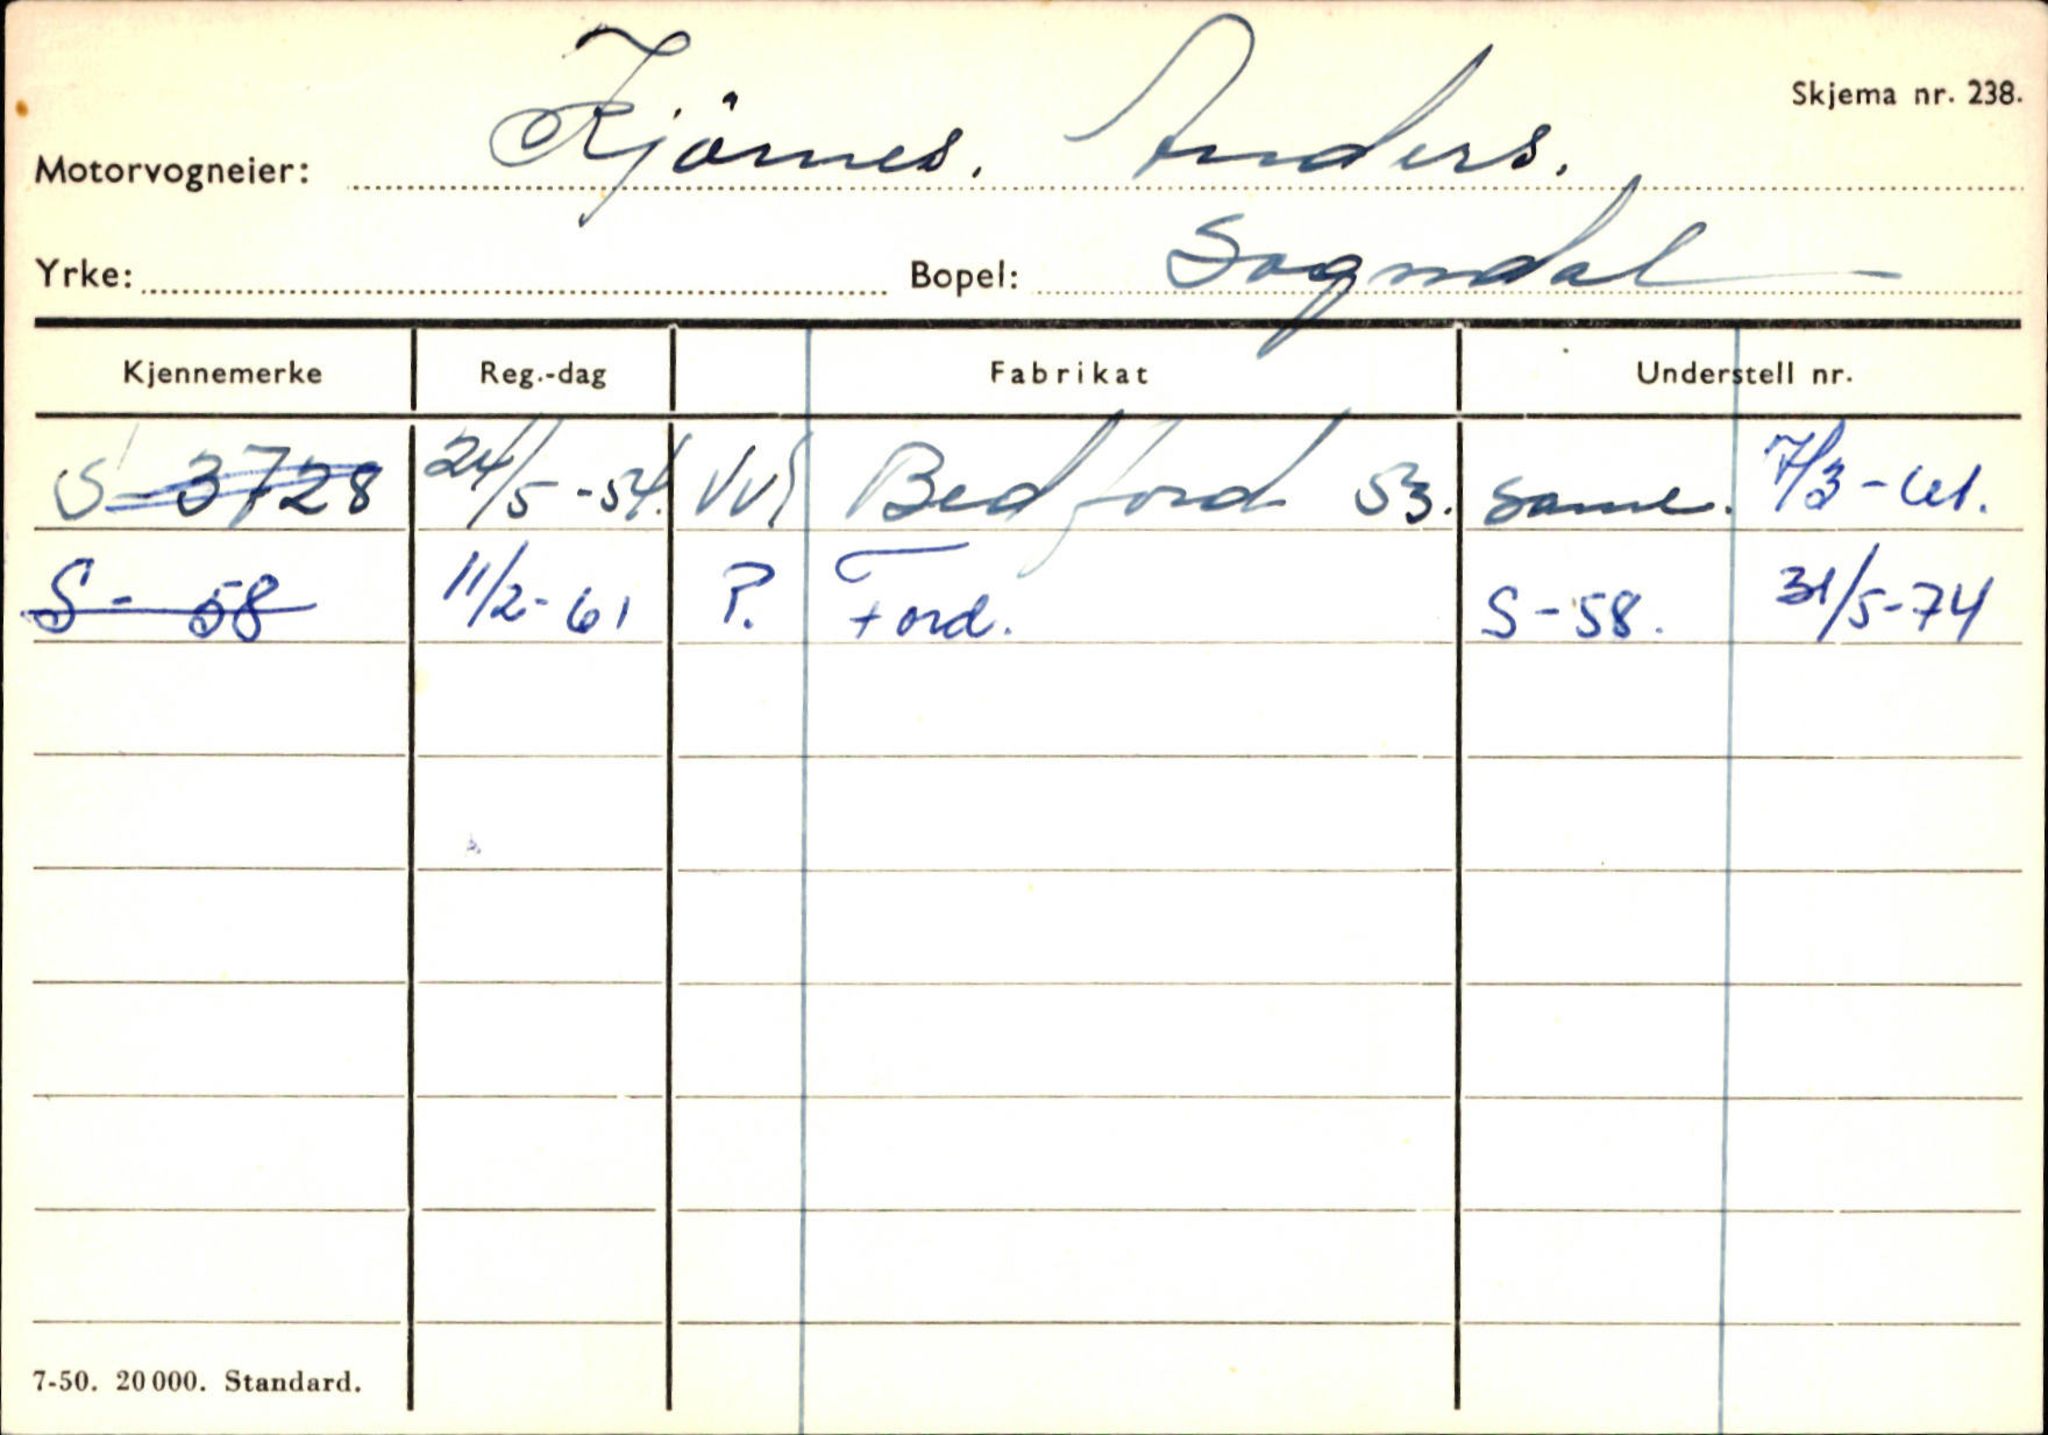 Skjema nr. 238.
Motorvogneier: Kjörnes. Anders.
Yrke: Bopel: Sogndal
Kjennemerke Reg.-dag Fabrikat Understell nr.
S-3728 24/5-54. VV Bedford 53. same. 7/3-61.
S-58 11/2-61 P. Ford. S-58. 31/5-74
7-50. 20 000. Standard.